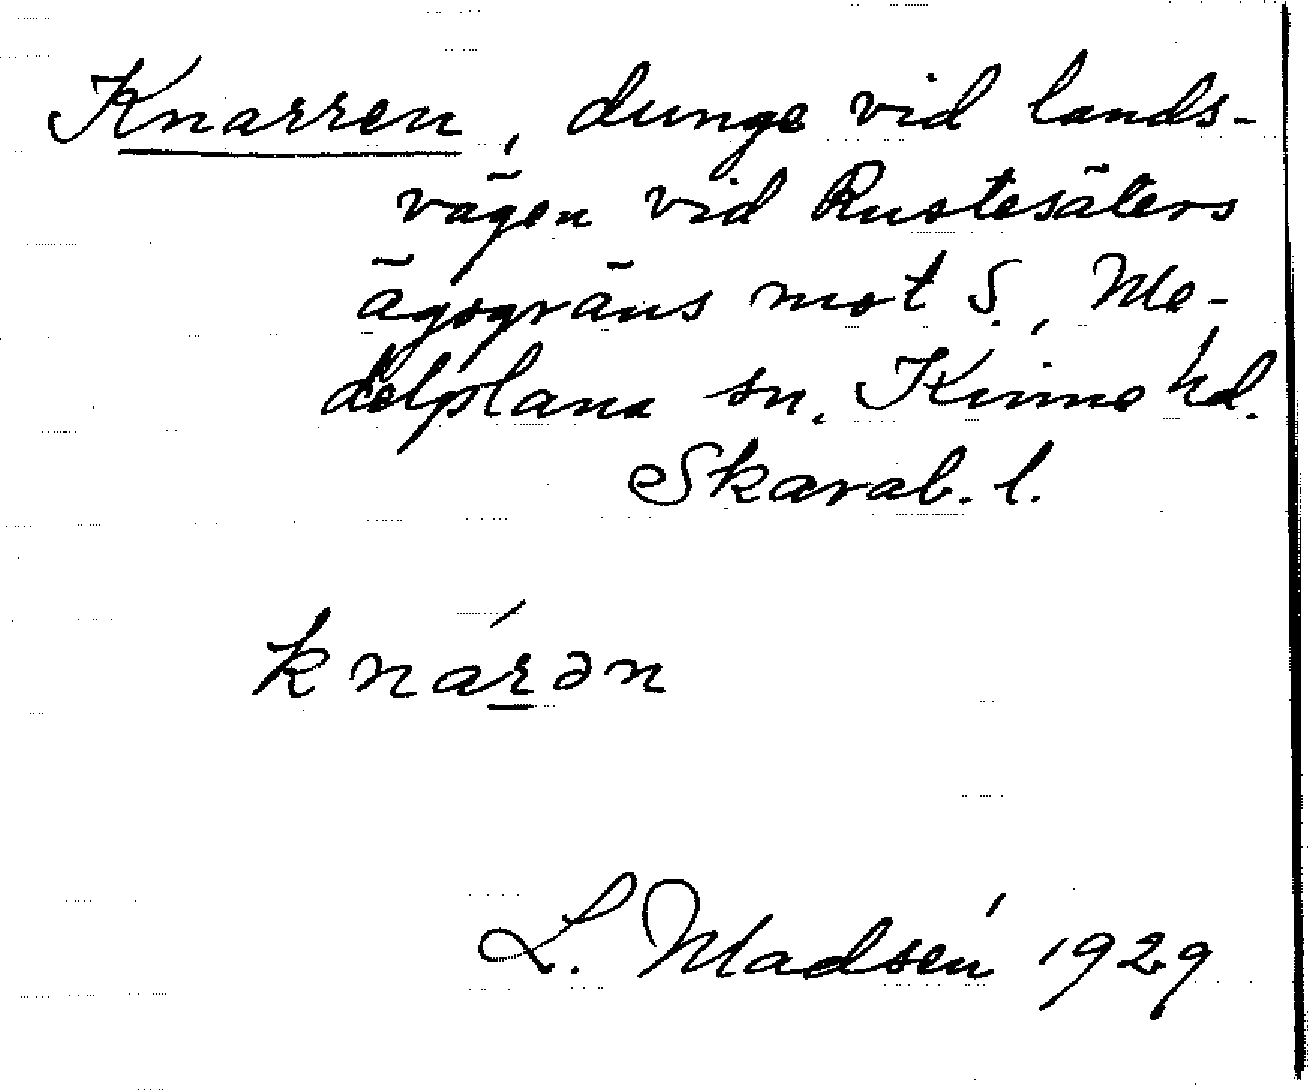 Knarren, dunge vid lands-
vägen vid Rustesäters
ägogräns mot S., Me-
delplana sn. Kinne hd.
Skarab. l.
knárən
L. Madsén 1929